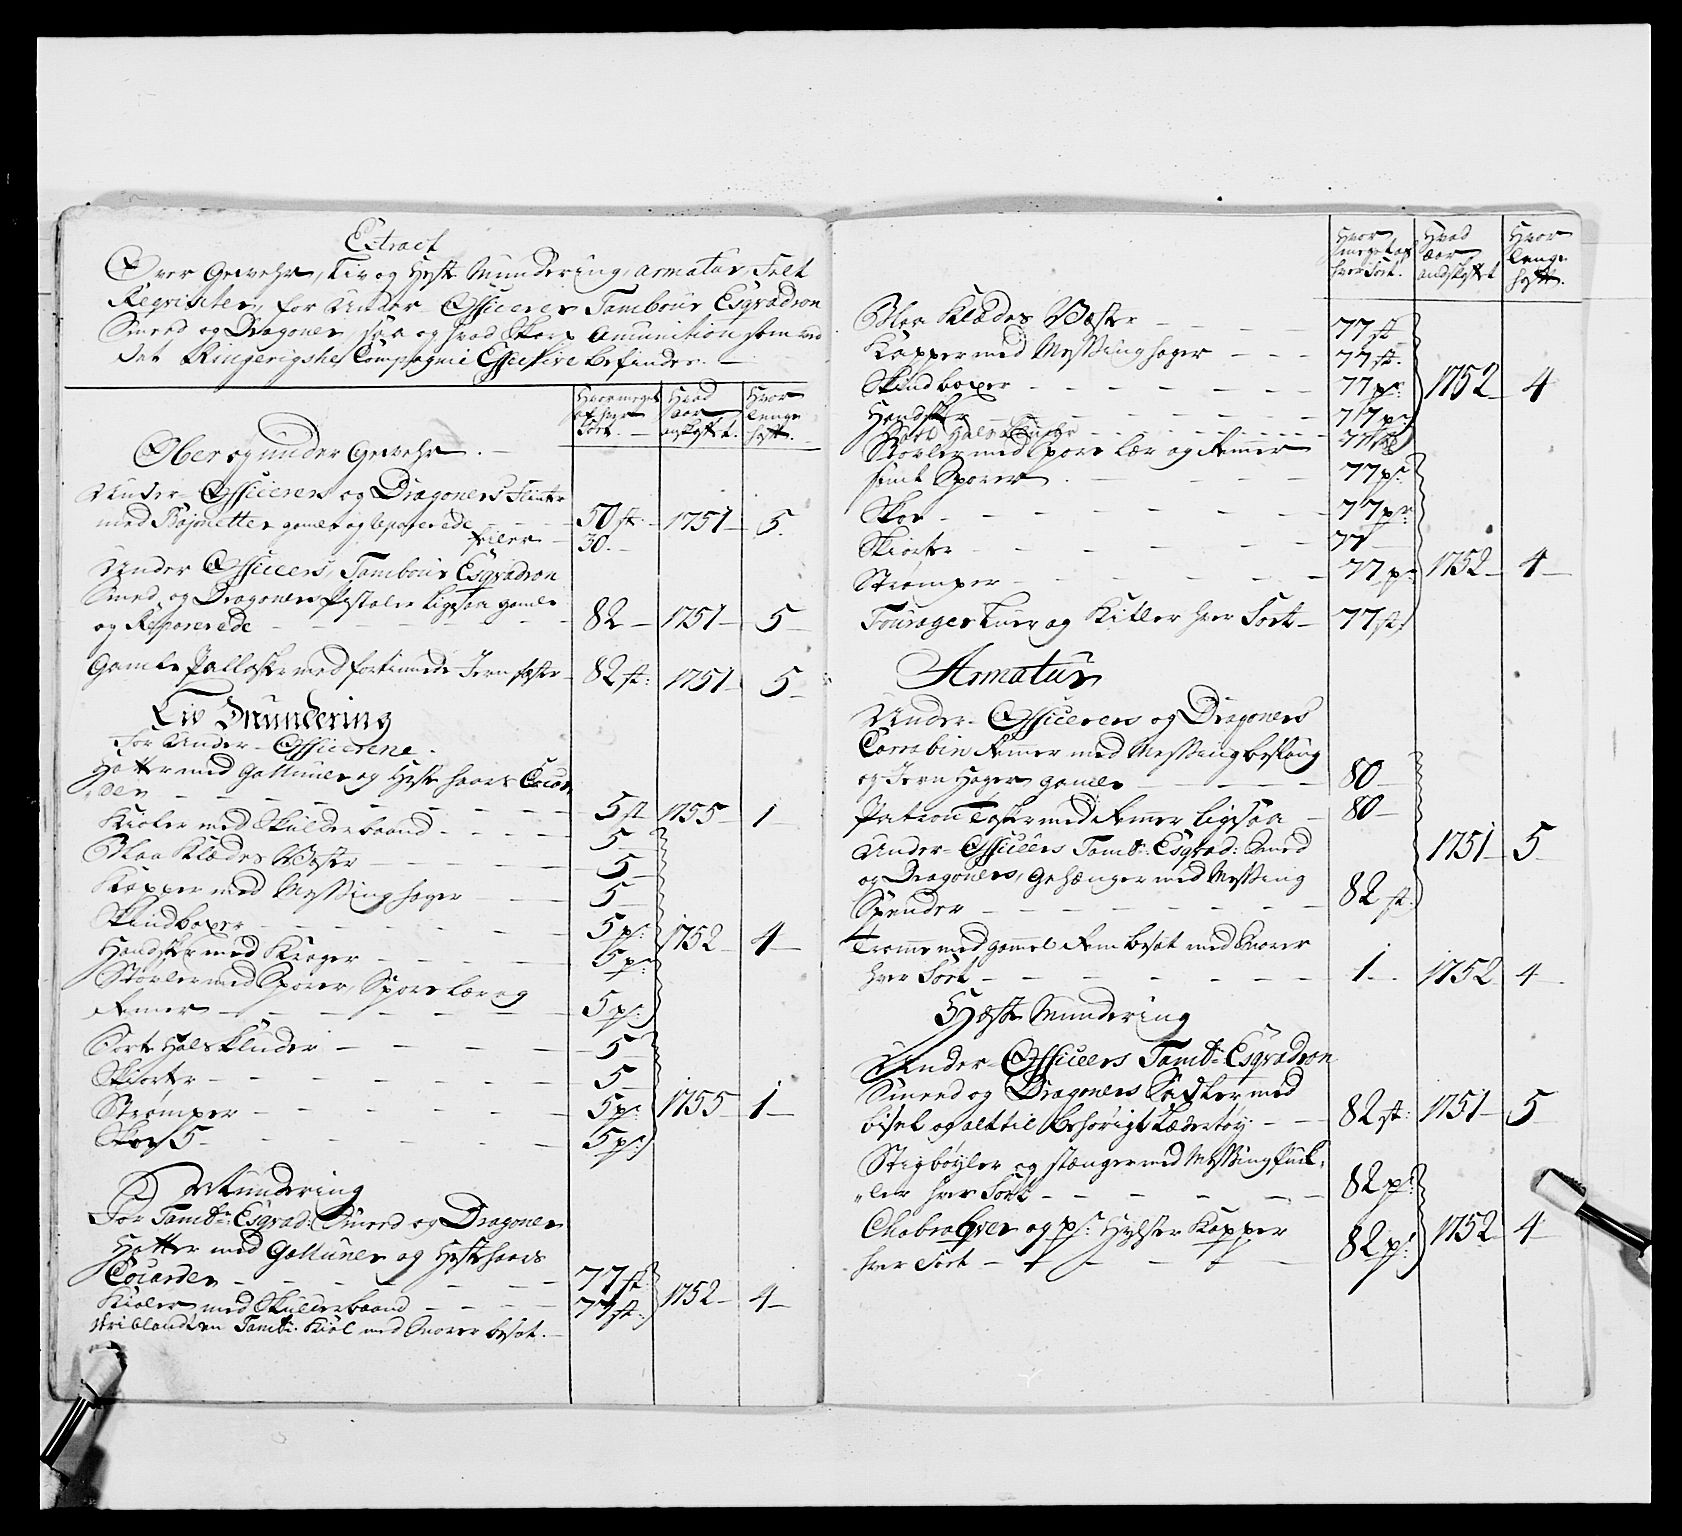 Extract
Over Gewehr, Liv og Hest Mundering, Armatur, Felt
Reqvisiter, for Under-Officerer Tambour Esqvadron
Smed og Dragoner, saa og hvad Skarp Amunition som ved
det Ringerigske Compagnie Effective befindes.
Hvor meget af hver Sort. Hvad Aar anskaffet. Hvor lenge hafft.
Ober og under Gewehr.
Under-Officerer og Dragoners Flinter
med Bajonetter gamle og reparerede 50 st. 1751 5.
30.
Under Officeers, Tambour Esqvadron
Smed og Dragoners Pistoler ligesaa gamle
og Reparerede 82 1751 5
Gamle Pallasker med fortinnede Jern fæster 82 st: 1751 5
Liv Mundering
for Under-Officerene.
Hatter med Galluner og Heste haars Cocar
den 5 st 1755 1
Kioler med Skulderbaand 5
Blaa Klædes Vester 5
Kapper med Messing hager 5
Skindboxer 5 pr: 1752 4
Handsker med Krager 5 pr
Støvler med Sporer, Spore lær og
Remer 5 pr:
Sorte Halskluder 5
Skiorter 5
Strømper 5 pr: 1755 1
Skoe 5 5 pr:
Mundering
For Tambr: Esqvad: Smed og Dragoner
Hatter med Galluner og Hestehaars
Cocarder 77 st
Kioler med Skulderbaand 77 st. 1752 4
hvriblandt en Tamb: Kiol med Snorer besat.
Hvor meget af hver Sort. Hvad Aar andskaffet Hvor lenge hafft.
Blaa Klædes Væster 77 st
Kapper med Messing hager 77 st.
Skindboxer 77 pr 1752 4
Handsker 77 pr
Sorte Halskluder 77 st
Støvler med Spore lær og Remer
samt Sporer 77 pr
Skoe 77 pr
Skiorter 77
Strømper 77 pr 1752 4
Fourage Luer og Kitler hver Sort 77 st:
Armatur
Under-Officerers og Dragoners
Carrabin Remer med Messing beslaug
og Jern Hager gamle 80
Patron Tasker med Remer ligesaa 80
Under-Officeers Tamb: Esqvad: Smed 1751 5
og Dragoners, Gehænger med Messing
Spender 82 st.
Tromme med gammel Rem besat med Snorer
hver Sort 1. 1752 4
Hæste Mundering
Under-Officeers Tamb: Esqvadron
Smed og Dragoners Sadler med
bisel og alt til behørigt Lædertøy 82 st: 1751 5
Stigbøyler og stænger med Messing Puck-
ler hver Sort 82 pr.
Chabraquer og pr. Hylster Kapper
hver Sort 82 pr: 1752 4